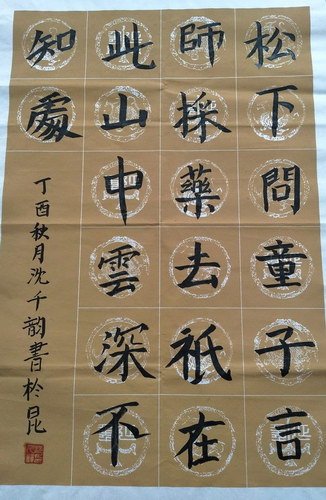 松下問童子言
師採藥去祇在
此山中雲深不
知處
丁酉秋月沈千韵書於昆